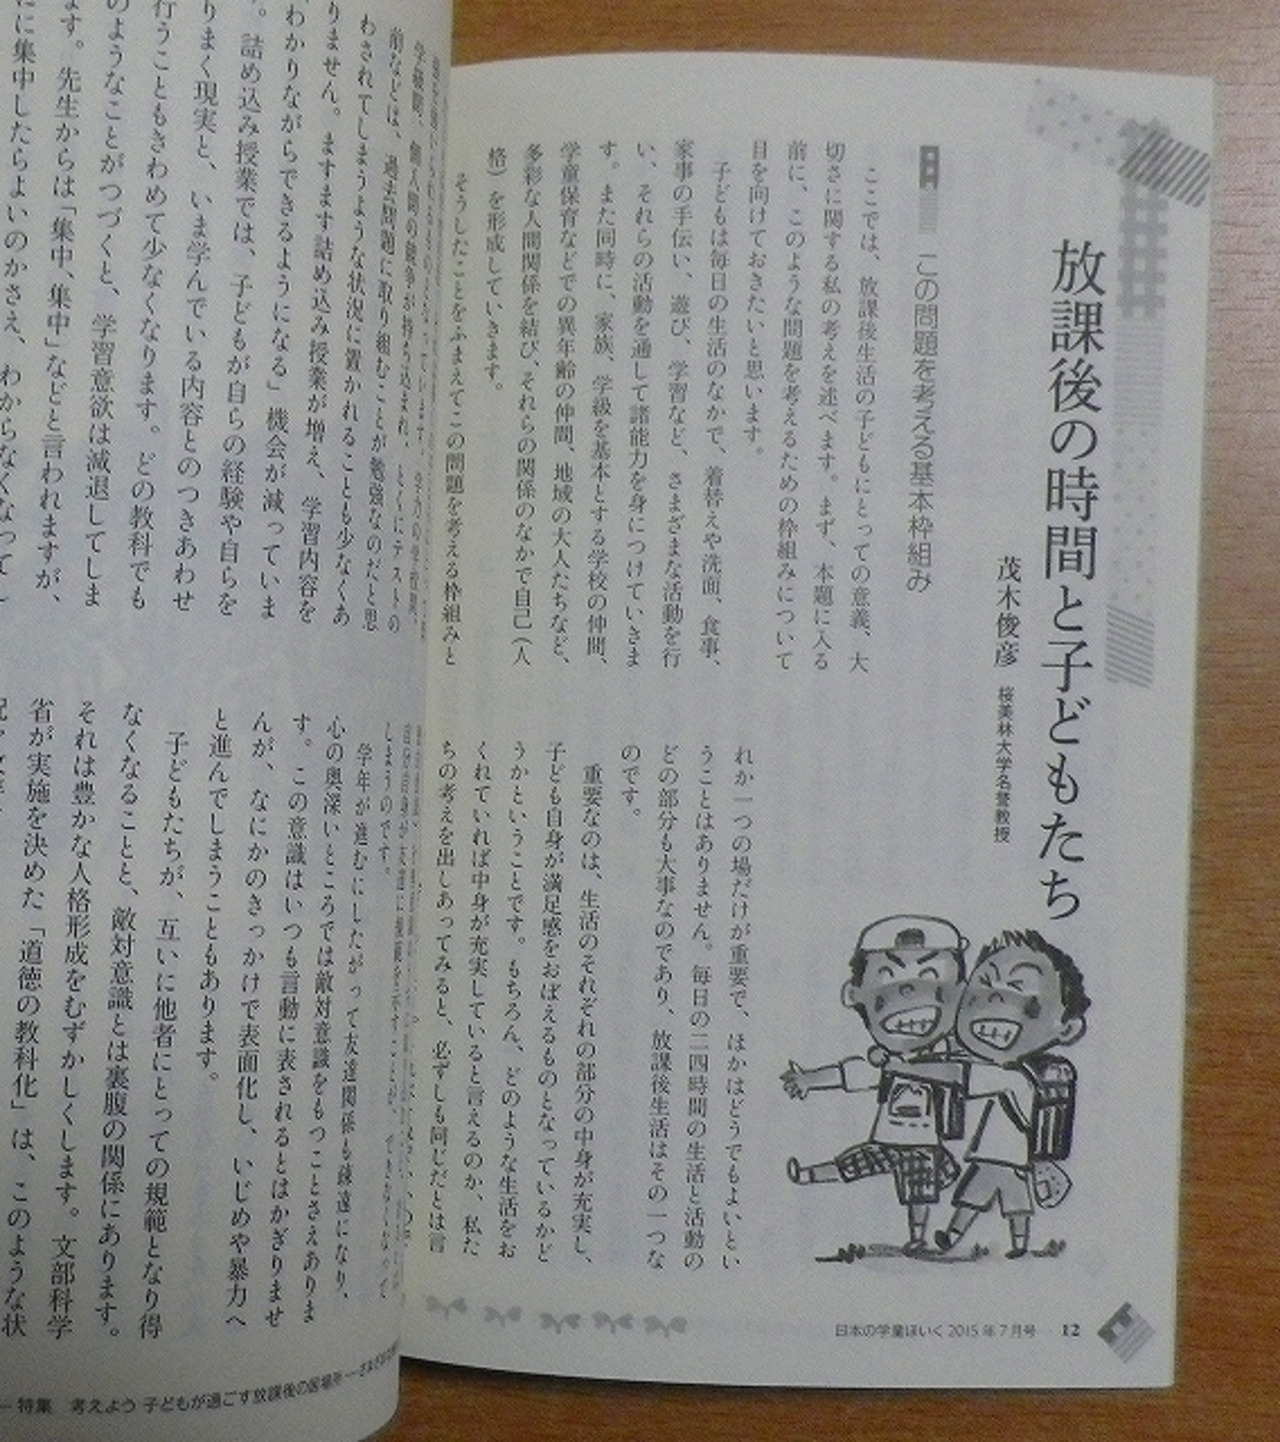 放課後の時間と子どもたち
茂木俊彦 桜美林大学名誉教授
この問題を考える基本枠組み
ここでは、放課後生活の子どもにとっての意義、大
切さに関する私の考えを述べます。まず、本題に入る
前に、このような問題を考えるための枠組みについて
目を向けておきたいと思います。
子どもは毎日の生活のなかで、着替えや洗面、食事、
家事の手伝い、遊び、学習など、さまざまな活動を行
い、それらの活動を通して諸能力を身につけていきま
す。また同時に、家族、学級を基本とする学校の仲間、
学童保育などでの異年齢の仲間、地域の大人たちなど、
多彩な人間関係を結び、それらの関係のなかで自己（人
格）を形成していきます。
そうしたことをふまえてこの問題を考える枠組みと
れか一つの場だけが重要で、ほかはどうでもよいとい
うことはありません。毎日の二四時間の生活と活動の
どの部分も大事なのであり、放課後生活はその一つな
のです。
重要なのは、生活のそれぞれの部分の中身が充実し、
子ども自身が満足感をおぼえるものとなっているかど
うかということです。もちろん、どのような生活をお
くれていれば中身が充実していると言えるのか、私た
ちの考えを出しあってみると、必ずしも同じだとは言
日本の学童ほいく 2015年7月号 12
前などは、過去問題に取り組むことが勉強なのだと思
わされてしまうような状況に置かれることも少なくあ
りません。ますます詰め込み授業が増え、学習内容を
わかりながらできるようになる」機会が減っていま
。詰め込み授業では、子どもが自らの経験や自らを
りまく現実と、いま学んでいる内容とのつきあわせ
行うこともきわめて少なくなります。どの教科でも
のようなことがつづくと、学習意欲は減退してしま
ます。先生からは「集中、集中」などと言われますが、
に集中したらよいのかさえ、わからなくなって
しまうのです。
学年が進むにしたがって友達関係も疎遠になり、
心の奥深いところでは敵対意識をもつことさえありま
す。この意識はいつも言動に表されるとはかぎりませ
んが、なにかのきっかけで表面化し、いじめや暴力へ
と進んでしまうこともあります。
子どもたちが、互いに他者にとっての規範となり得
なくなることと、敵対意識とは裏腹の関係にあります。
それは豊かな人格形成をむずかしくします。文部科学
省が実施を決めた「道徳の教科化」は、このような状
特集 考えよう 子どもが過ごす放課後の居場所